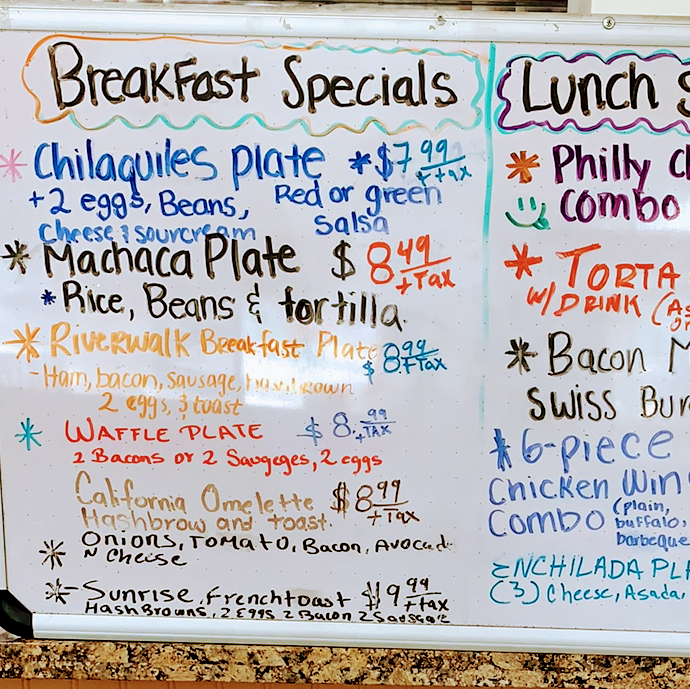 Breakfast Specials
* Chilaquiles plate * $7.99 + tax
+ 2 eggs, Beans, Red or green
cheese & sourcream salsa
* Machaca Plate $8.49 + Tax
* Rice, Beans & tortilla
* Riverwalk Breakfast Plate $8.99 + Tax
- Ham, bacon, sausage, hashbrown
2 eggs, & toast
* WAFFLE PLATE $8.99 + TAX
2 Bacons or 2 Saugeges, 2 eggs
California Omelette $8.99 + Tax
Hashbrow and toast.
* Onions, Tomato, Bacon, Avocad
N Cheise
* Sunrise, Frenchtoast $9.99 + tax
HashBrowns, 2 Eggs 2 Bacon 2 Sausage
Lunch S
* Philly ch
combo
* TORTA
W/ DRINK (As
* Bacon M
SWISS Bur
* 6-piece
Chicken Win
Combo (plain,
buffalo,
barbeque
ENCHILADA PLA
(3) Cheese, Asada,